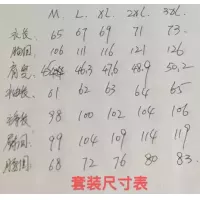 M. L. XL. 2XL. 3XL.
衣长 65 67 69 71 73
胸围 106 111 116 121 126
肩宽 45 46.3 47.6 48.9 50.2
袖长 61 62 63 64 65
裤长 98 100 102 104 106
臀围 99 104 109 114 119
腰围 68 72 76 80 83
套装尺寸表